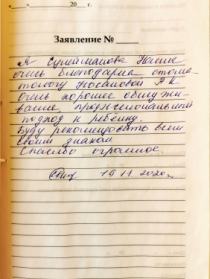 20 г.
Заявление №
Я Сулейманова Наиле
очень благодарна стома
тологу Юсыповой Р.К
Очень хорошее обслужи-
вание, профессиональный
подход к ребёнку.
Буду рекомендовать всем
своим знаком
Спасибо огромное
16 11 2020г.